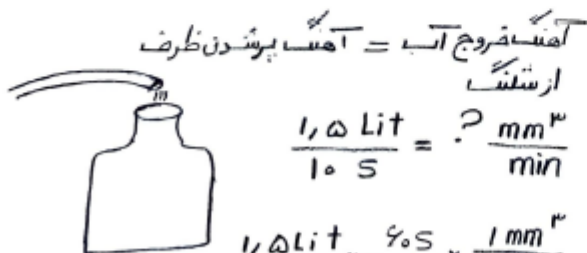 آهنگ خروج آب = آهنگ پرشدن ظرف
از شلنگ
۱,۵ Lit / ۱۰ S = ? mm³ / min
۱,۵ Lit × ۶۰ S × ۱ mm³